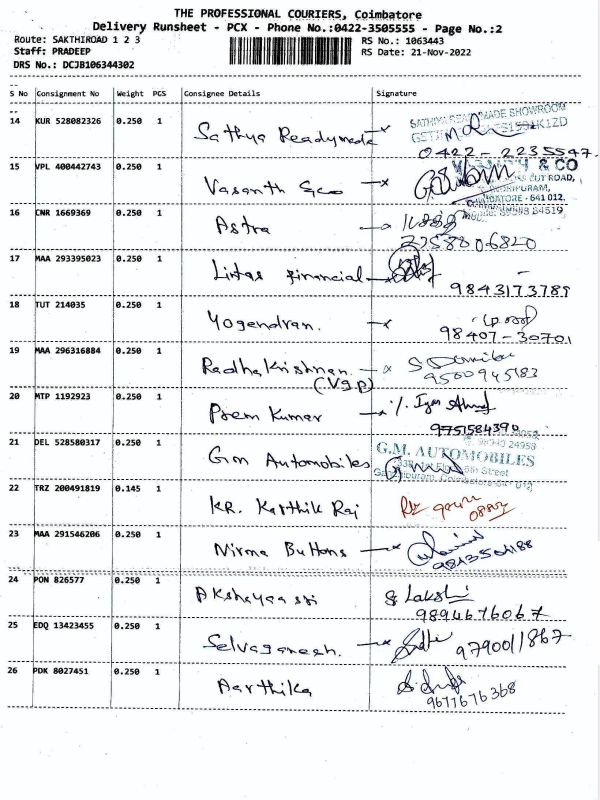 THE PROFESSIONAL COURIERS, Coimbatore
Delivery Runsheet - PCX - Phone No.:0422-3505555 - Page No.:2
Route: SAKTHIROAD 1 2 3 RS No.: 1063443
Staff: PRADEEP RS Date: 21-Nov-2022
DRS No.: DCJB106344302
S No Consignment No Weight PCS Consignee Details Signature
14 KUR 528082326 0.250 1 Sathya Readymade
SATHYA READYMADE SHOWROOM
0422-2235547
15 VPL 400442743 0.250 1 Vasanth & Co
& CO
CUT ROAD,
641 012.
16 CNR 1669369 0.250 1 Astra
17 MAA 293395023 0.250 1 Lintas financial
9843173789
18 TUT 214035 0.250 1 Yogendran.
98407-30701
19 MAA 296316884 0.250 1 Radhakrishnan.
(Vgp)
20 MTP 1192923 0.250 1 Prem Kumar
9751584390
21 DEL 528580317 0.250 1 Gm Automobiles
G.M. AUTOMOBILES
Street
22 TRZ 200491819 0.145 1 KR. Karthik Raj
23 MAA 291546206 0.250 1 Nirma Buttons
24 PON 826577 0.250 1 Lakshi
9894676067
25 EDQ 13423455 0.250 1 Selvaganesh.
9790011867
26 PDK 8027451 0.250 1 Aarthika
9677676368